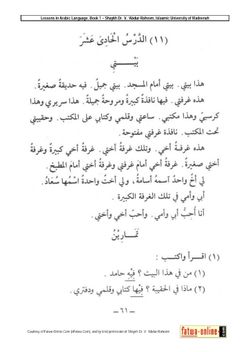 Lessons in Arabic Language, Book 1 - Shaykh Dr. V. Abdur Raheem, Islamic University of Madeenah
(١١) الدَّرْسُ الْحَادِيَ عَشَرَ
بَيْـتِي
هذا بيتي. بيتي أمام المسجد. بيتي جميلٌ. فيه حديقة صغيرةٌ.
هذه غرفتي. فيها نافذة كبيرة ومروحة جميلة. هذا سريري وهذا
كرسيي وهذا مكتبي. ساعتي وقلمي وكتابي على المكتب. وحقيبتي
تحت المكتب. نافذة غرفتي مفتوحة.
هذه غرفةُ أخي. وتلك غرفةُ أختي. غرفةُ أخي كبيرةٌ وغرفةُ
أختي صغيرةٌ. غرفةُ أخي أمام غرفتي وغرفةُ أختي أمام المطبخ.
لي أخٌ واحدٌ اسمه أسامة. ولي أختٌ واحدة اسْمُها سُعَادُ.
أبي وأمي في تلك الغرفة الكبيرة.
أنا أُحِبُّ أبي وأمي. وأُحِبُّ أخي وأختي.
تَمَـارِينُ
(١) اقرأ واكتب:
(١) من في هذا البيت ؟ فيْه حامد.
(٢) ماذا في الحقيبة ؟ فيْها كتابي وقلمي ودفتري.
— ٦١ —
fatwa-online